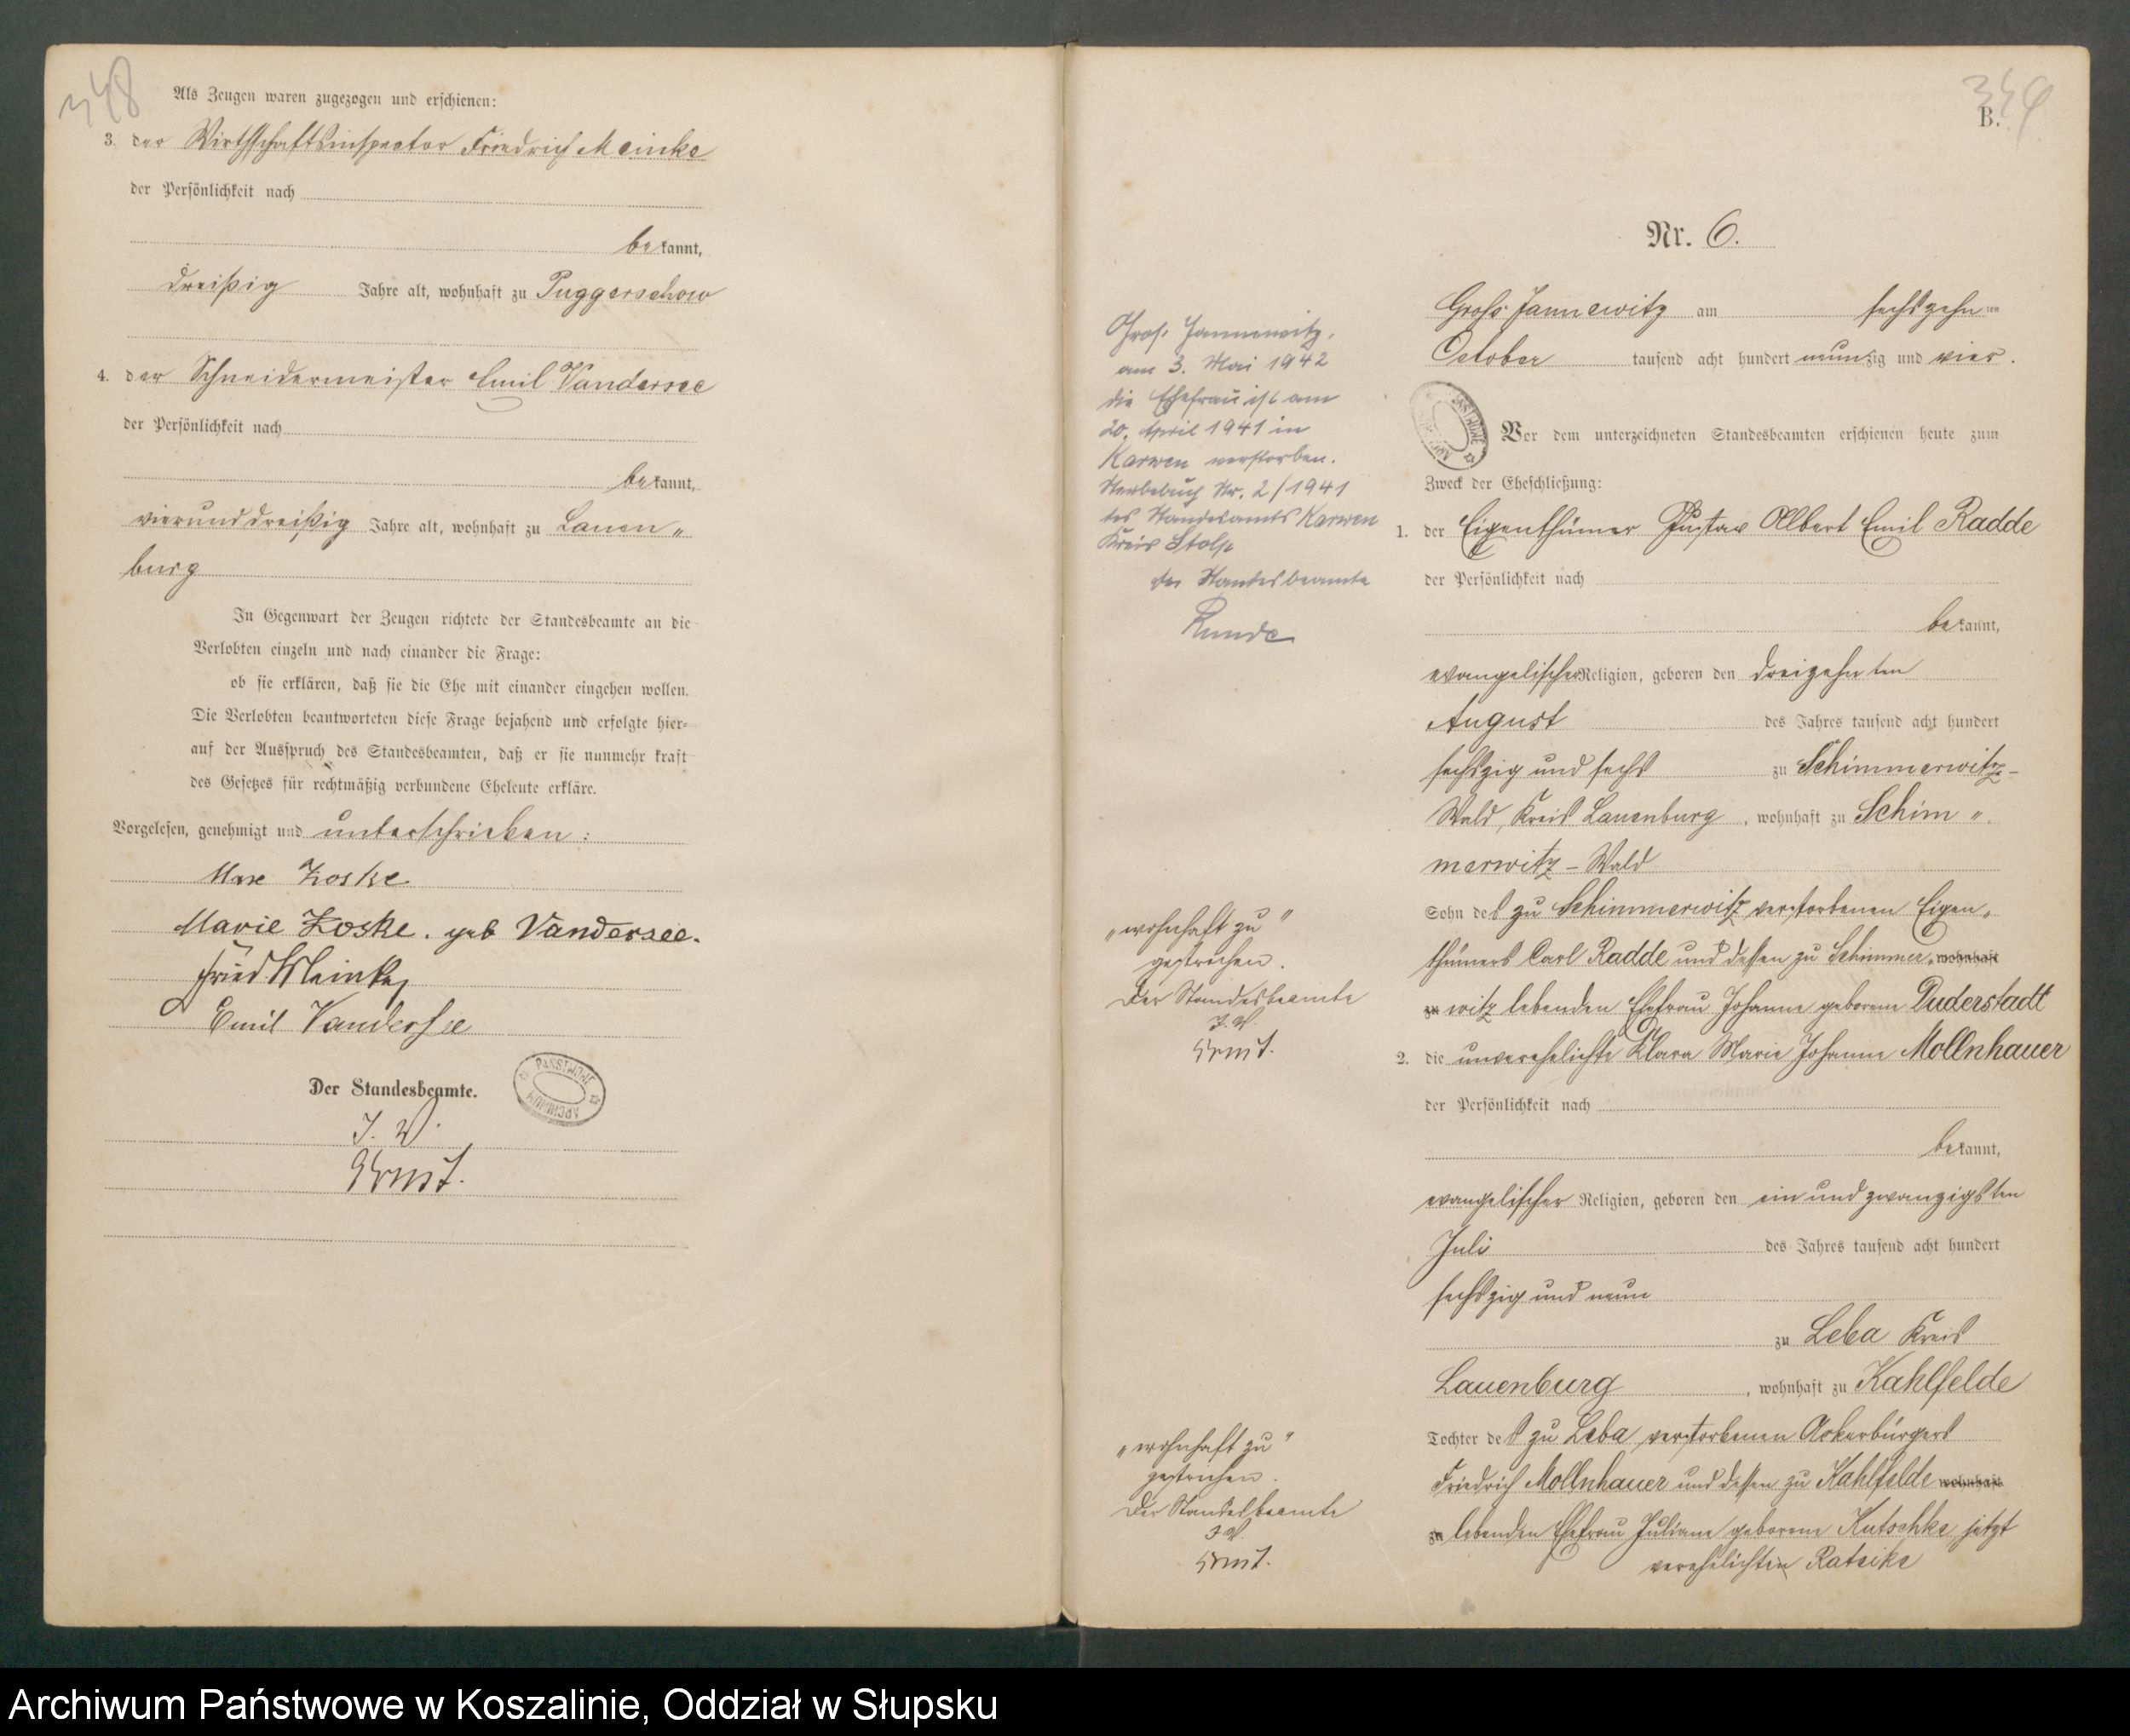 348
Als Zeugen waren zugezogen und erschienen:
3. der Wirthschaftsinspector Friedrich Meinke
der Persönlichkeit nach
bekannt,
dreißig Jahre alt, wohnhaft zu Puggerschow
4. der Schneidermeister Emil Vandersee
der Persönlichkeit nach
bekannt,
vierunddreißig Jahre alt, wohnhaft zu Lauen„
burg
In Gegenwart der Zeugen richtete der Standesbeamte an die
Verlobten einzeln und nach einander die Frage:
ob sie erklären, daß sie die Ehe mit einander eingehen wollen.
Die Verlobten beantworteten diese Frage bejahend und erfolgte hier-
auf der Ausspruch des Standesbeamten, daß er sie nunmehr kraft
des Gesetzes für rechtmäßig verbundene Eheleute erkläre.
Vorgelesen, genehmigt und unterschrieben:
Max Zoske
Marie Zoske. geb Vandersee.
Fried. Meinke
Emil Vandersee
Der Standesbeamte.
J. V.
Ernst.
PAŃSTWOWE ARCHIWUM
349
B.
Nr. 6.
Groß Jannewitz am sechszehnten
October tausend acht hundert neunzig und vier.
Vor dem unterzeichneten Standesbeamten erschienen heute zum
Zweck der Eheschließung:
1. der Eigenthümer Gustav Albert Emil Radde
der Persönlichkeit nach
bekannt,
evangelischer Religion, geboren den dreizehnten
August des Jahres tausend acht hundert
sechszig und sechs zu Schimmerwitz-
Wald, Kreis Lauenburg, wohnhaft zu Schim„
merwitz-Wald
Sohn des zu Schimmerwitz verstorbenen Eigen„
thümers Carl Radde und dessen zu Schimmer„ wohnhaft
zu witz lebenden Ehefrau Johanne geborene Duderstadt
2. die unverehelichte Klara Marie Johanne Mollnhauer
der Persönlichkeit nach
bekannt,
evangelischer Religion, geboren den ein und zwanzigsten
Juli des Jahres tausend acht hundert
sechszig und neun
zu Leba Kreis
Lauenburg, wohnhaft zu Kahlfelde
Tochter des zu Leba verstorbenen Ackerbürgers
Friedrich Mollnhauer und dessen zu Kahlfelde wohnhaft
zu lebenden Ehefrau Juliane geborene Kutschke jetzt
verehelichten Ratzike
Groß Jannewitz,
am 3. Mai 1942
die Ehefrau ist am
20. April 1941 in
Karwen verstorben.
Sterbebuch Nr. 2/1941
des Standesamts Karwen
Kreis Stolp
der Standesbeamte
Runde
„wohnhaft zu"
gestrichen.
Der Standesbeamte
J. V.
Ernst.
„wohnhaft zu"
gestrichen.
Der Standesbeamte
J. V.
Ernst.
Archiwum Państwowe w Koszalinie, Oddział w Słupsku